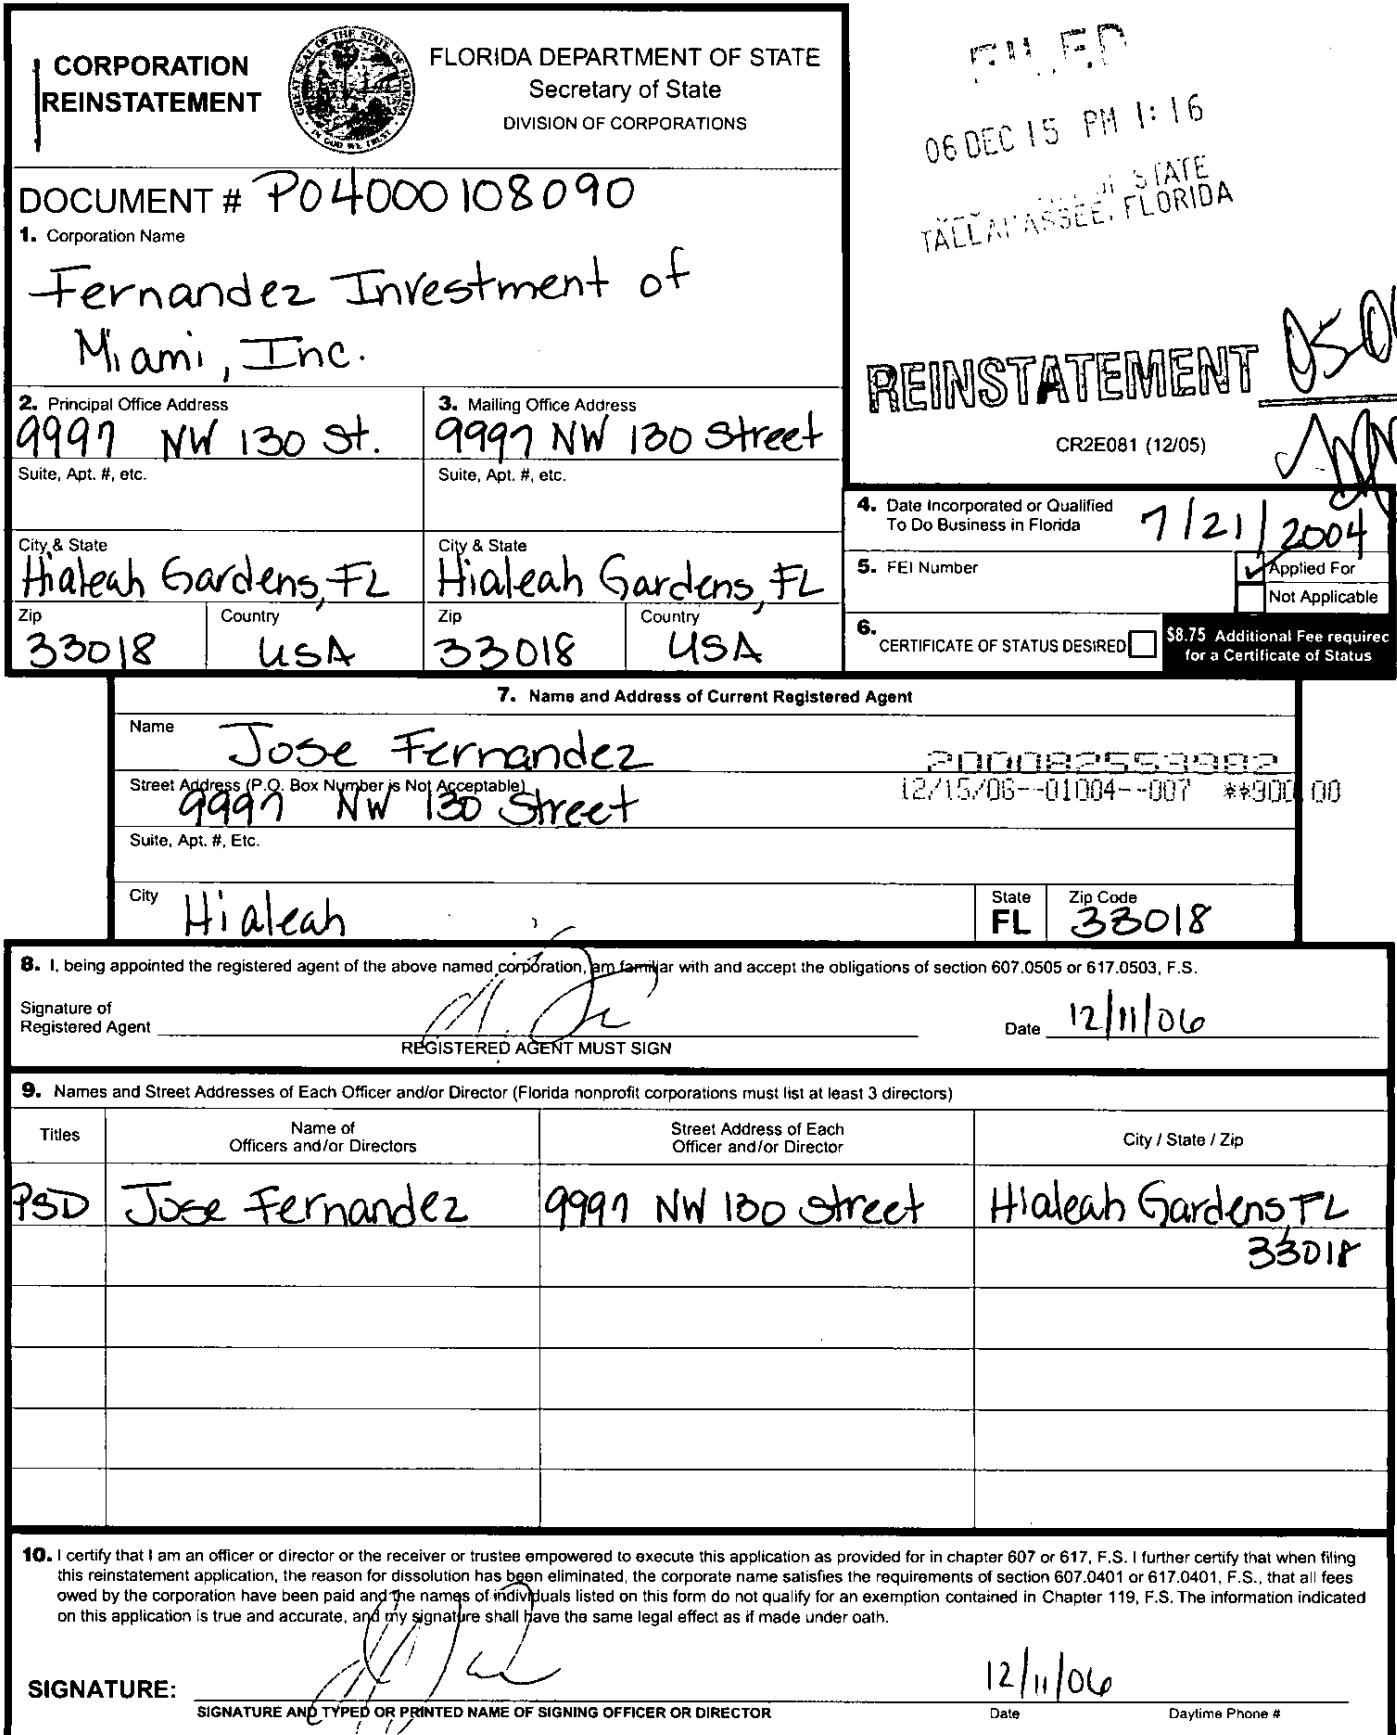 CORPORATION
REINSTATEMENT
GREAT SEAL OF THE STATE OF FLORIDA
IN GOD WE TRUST
FLORIDA DEPARTMENT OF STATE
Secretary of State
DIVISION OF CORPORATIONS
FILED
06 DEC 15 PM 1:16
OF STATE
TALLAHASSEE, FLORIDA
DOCUMENT # P04000108090
1. Corporation Name
Fernandez Investment of
Miami, Inc.
REINSTATEMENT
CR2E081 (12/05)
2. Principal Office Address
9997 NW 130 St.
Suite, Apt. #, etc.
City & State
Hialeah Gardens, FL
Zip
33018
Country
USA
3. Mailing Office Address
9997 NW 130 Street
Suite, Apt. #, etc.
City & State
Hialeah Gardens, FL
Zip
33018
Country
USA
4. Date Incorporated or Qualified
To Do Business in Florida
7/21/2004
5. FEI Number
Applied For
Not Applicable
6. CERTIFICATE OF STATUS DESIRED
$8.75 Additional Fee required
for a Certificate of Status
7. Name and Address of Current Registered Agent
Name
Jose Fernandez
200082553982
Street Address (P.O. Box Number is Not Acceptable)
9997 NW 130 Street
12/15/06--01004--007 **900.00
Suite, Apt. #, Etc.
City
Hialeah
State
FL
Zip Code
33018
8. I, being appointed the registered agent of the above named corporation, am familiar with and accept the obligations of section 607.0505 or 617.0503, F.S.
Signature of
Registered Agent
Date 12/11/06
REGISTERED AGENT MUST SIGN
9. Names and Street Addresses of Each Officer and/or Director (Florida nonprofit corporations must list at least 3 directors)
Titles
Name of
Officers and/or Directors
Street Address of Each
Officer and/or Director
City / State / Zip
PSD Jose Fernandez 9997 NW 130 Street Hialeah Gardens, FL
33018
10. I certify that I am an officer or director or the receiver or trustee empowered to execute this application as provided for in chapter 607 or 617, F.S. I further certify that when filing
this reinstatement application, the reason for dissolution has been eliminated, the corporate name satisfies the requirements of section 607.0401 or 617.0401, F.S., that all fees
owed by the corporation have been paid and the names of individuals listed on this form do not qualify for an exemption contained in Chapter 119, F.S. The information indicated
on this application is true and accurate, and my signature shall have the same legal effect as if made under oath.
12/11/06
SIGNATURE:
SIGNATURE AND TYPED OR PRINTED NAME OF SIGNING OFFICER OR DIRECTOR
Date
Daytime Phone #